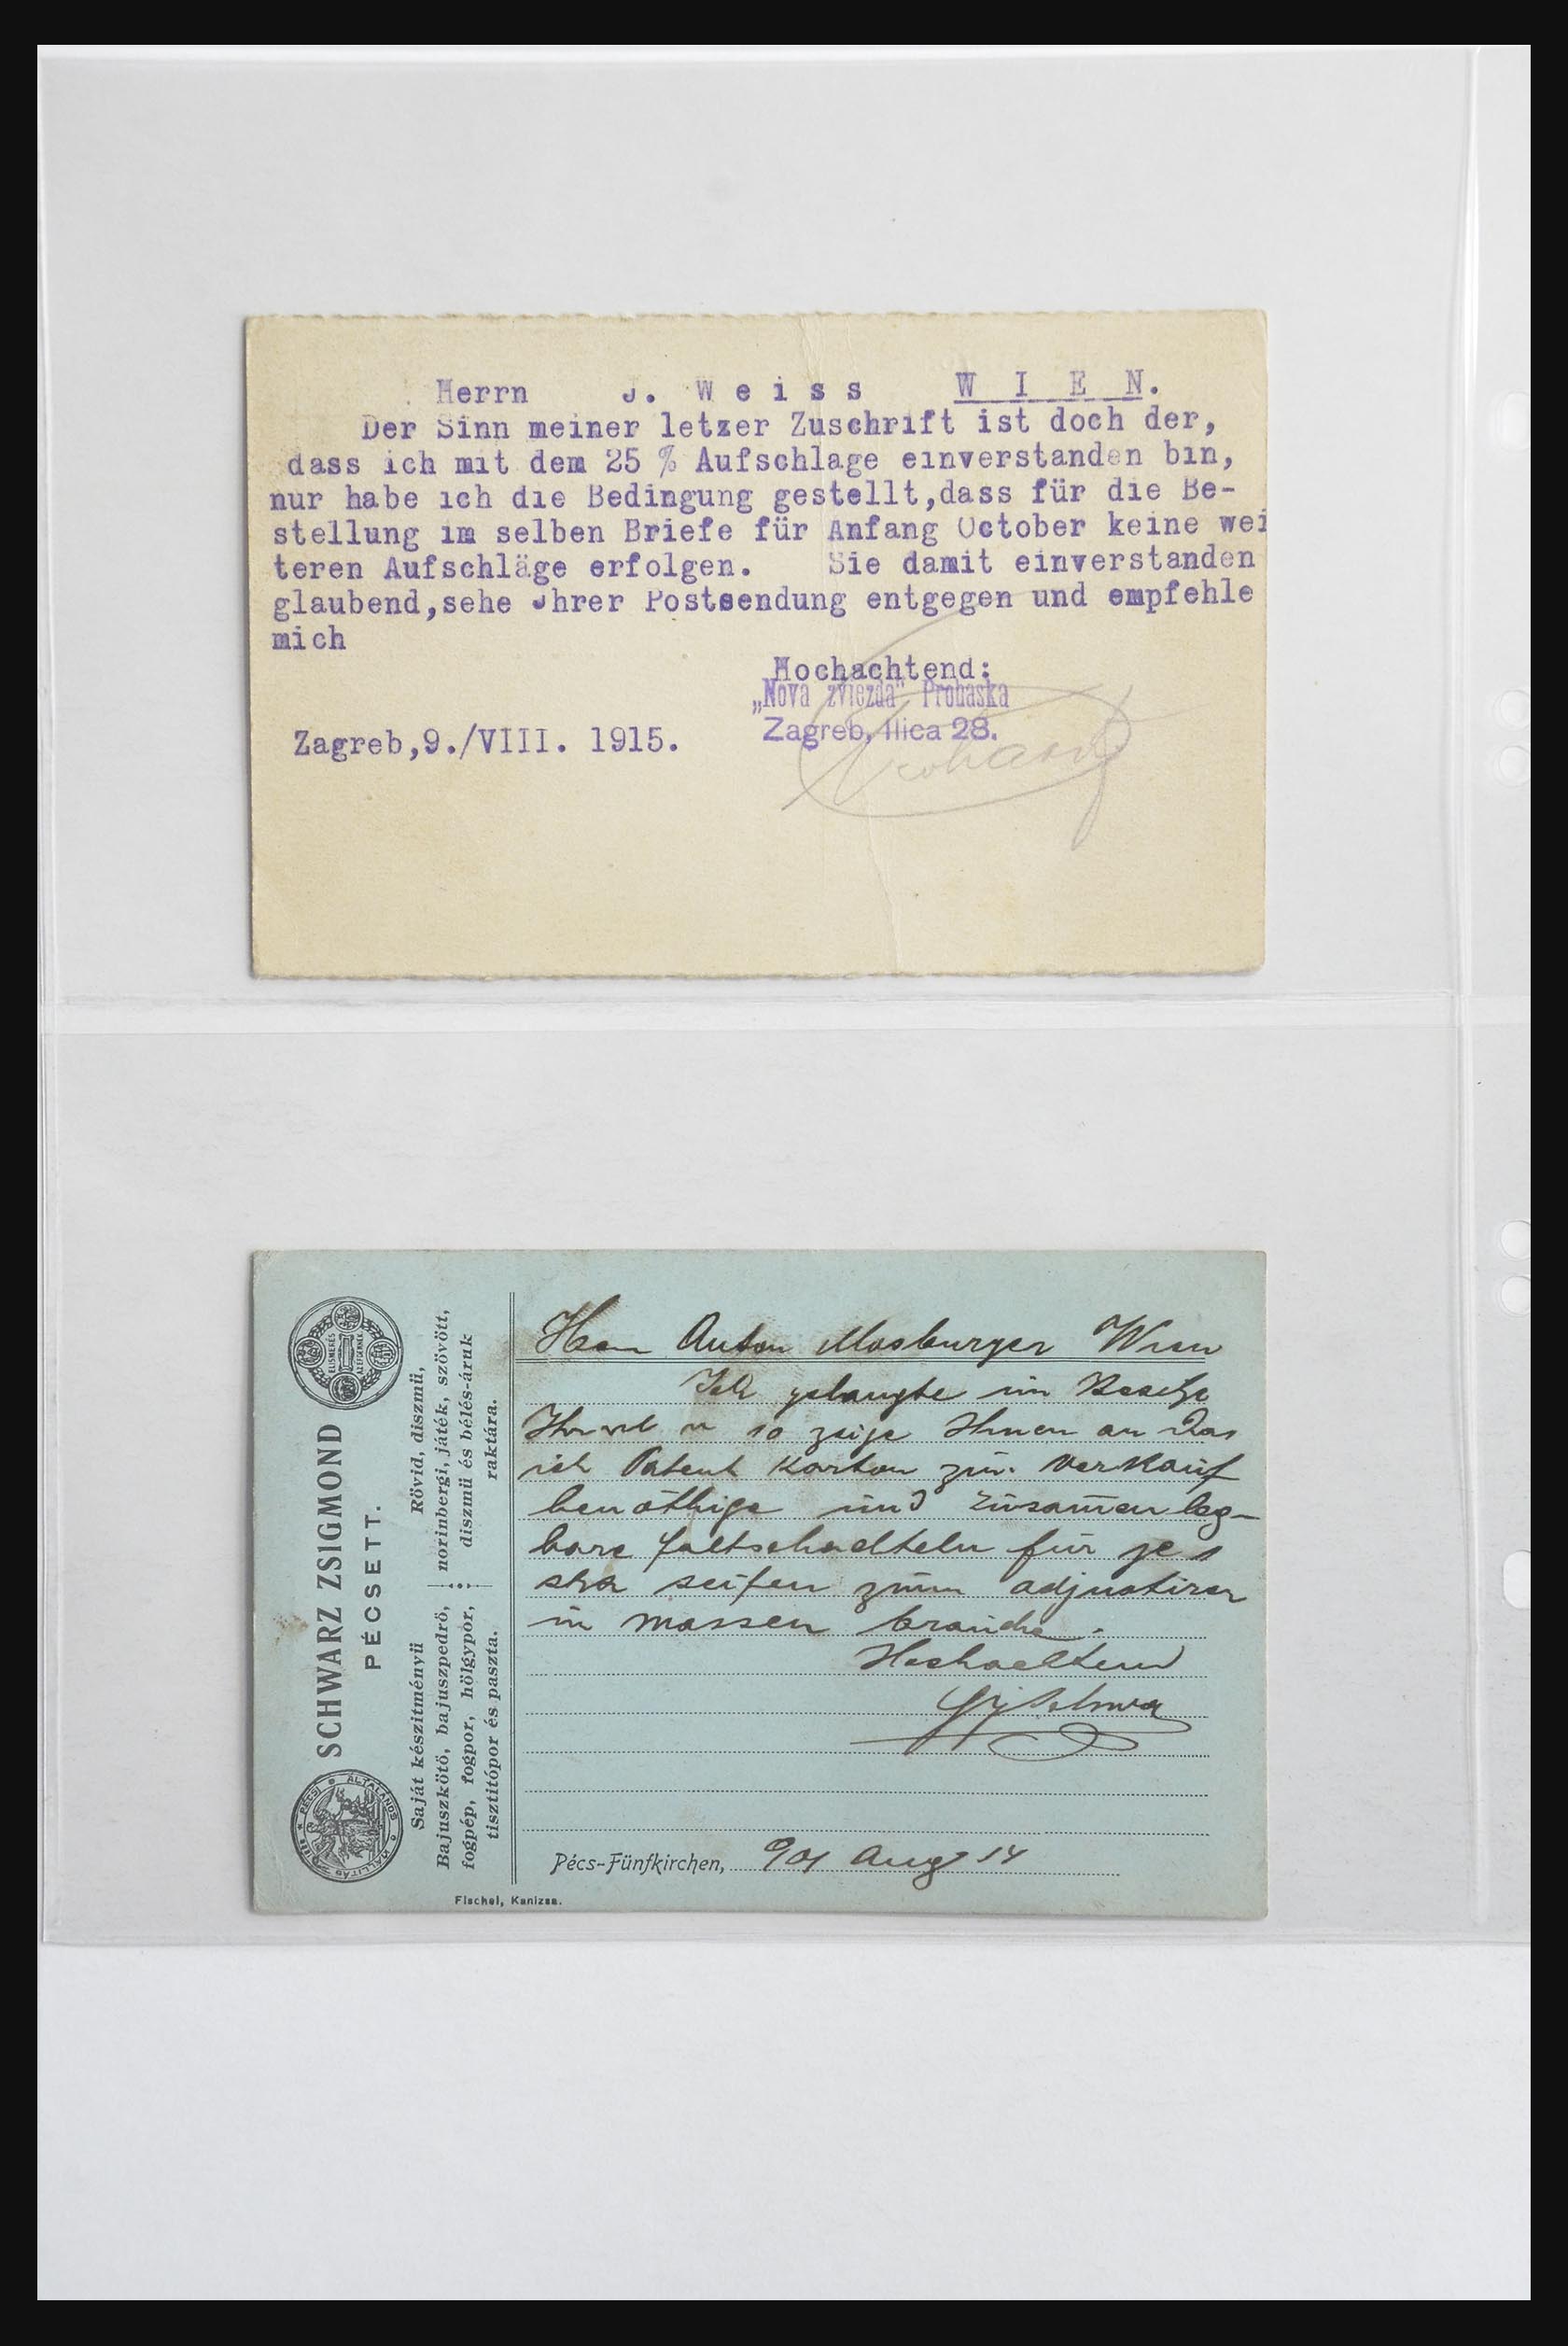 Herrn J. Weiss WIEN.
Der Sinn meiner letzer Zuschrift ist doch der,
dass ich mit dem 25 % Aufschlage einverstanden bin,
nur habe ich die Bedingung gestellt,dass für die Be-
stellung im selben Briefe für Anfang October keine wei
teren Aufschläge erfolgen. Sie damit einverstanden
glaubend,sehe Jhrer Postsendung entgegen und empfehle
mich
Hochachtend:
„Nova zviezda" Prohaska
Zagreb, Ilica 28.
Prohaska
Zagreb,9./VIII. 1915.
SCHWARZ ZSIGMOND
PÉCSETT.
ELISMERÉS
AZ ÉRDEMNEK
PÉCSI ÁLTALÁNOS KIÁLLITÁS 1888
Saját készitményü
Bajuszkötö, bajuszpedrö,
fogpép, fogpor, hölgypor,
tisztitópor és paszta.
Rövid, diszmü,
norinbergi, játék, szövött,
diszmü és bélés-áruk
raktára.
Herrn Anton Mosburger Wien
Ich gelangte im Besitze
so zeige Ihnen an das
ich Patent Karton zum Verkauf
benöthige und zusammenleg-
bare faltschachteln für je 1
stk seifen zum adjustiren
in massen brauche.
Hochachtend
Pécs-Fünfkirchen, 901 Aug 14
Fischel, Kanizsa.